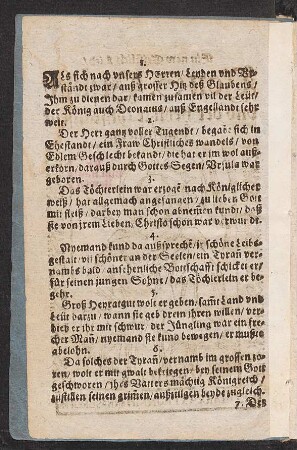 1.
ALs sich nach vnsers HErren / Leyden vnd Vr-
ständt zwar / auß grosser Hitz deß Glaubens /
Jhm zu dienen dar / kamen zusamen vil der Leut /
der König auch Deonatus / auß Engellandt sehr
weit.
2.
Der Herr gantz voller Tugendt / begab sich in
Ehestandt / ein Fraw Christliches wandels / von
Edlem Geschlecht bekandt / die hat er jm wol auß-
erkorn / darauß durch Gottes Segen / Vrsula war
geboren.
3.
Das Töchterlein war erzogē nach Königlicher
weiß / hat allgemach angefangen / zu lieben Gott
mit fleiß / darbey man schon abnemen kundt / daß
sie von jrem Lieben, Christo schon war verwundt.
4.
Nyemand kund da außsprechē / jr schöne Leibs-
gestalt / vil schöner an der Seelen / ein Tyran ver-
nambs bald / ansehenliche Bottschafft schicket er /
für seinen jungen Sohne / das Töchterlein er be-
gehr.
5.
Groß Heyratgut wolt er geben / sambt Land vnd
Leut darzu / wann sie geb drein ihren willen / ver-
hieß er ihr mit schwur / der Jüngling war ein fre-
cher Mañ / nyemand sie kund bewegen / er mußte
abelohn.
6.
Da solches der Tyrañ / vernamb im grossen zo-
ren / wolt er mit gwalt bekriegen / bey seinem Gott
geschworen / ihrs Vatters mächtig Königreich /
zustillen seinen grimen / außtilgen beyde zugleich.
7. Des